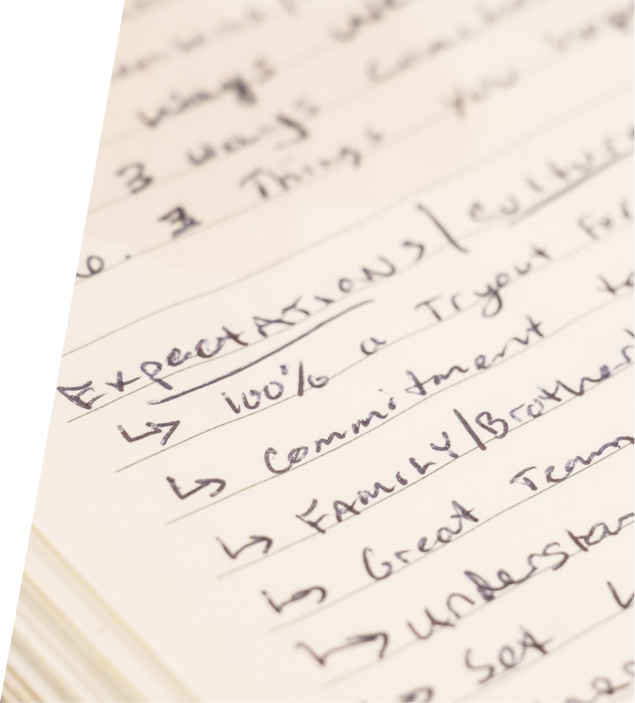 ways
3 ways
6. 3 Things you
Expectations/Culture
↳ 100% a Tryout For
↳ Commitment to
↳ FAmily/Brother
↳ Great Team
↳ Understan
Set